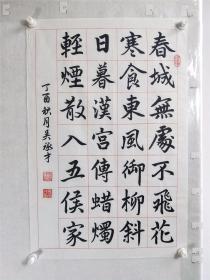 春城無處不飛花
寒食東風御柳斜
日暮漢宮傳蜡燭
輕煙散入五侯家
丁酉秋月吴承才